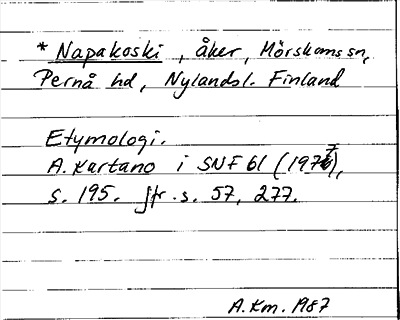 * Napakoski, åker, Mörskoms sn,
Pernå hd, Nylandsl. Finland
Etymologi.
A. Kartano i SNF 61 (1977),
s. 195. Jfr. s. 57, 277.
A.Km. 1987